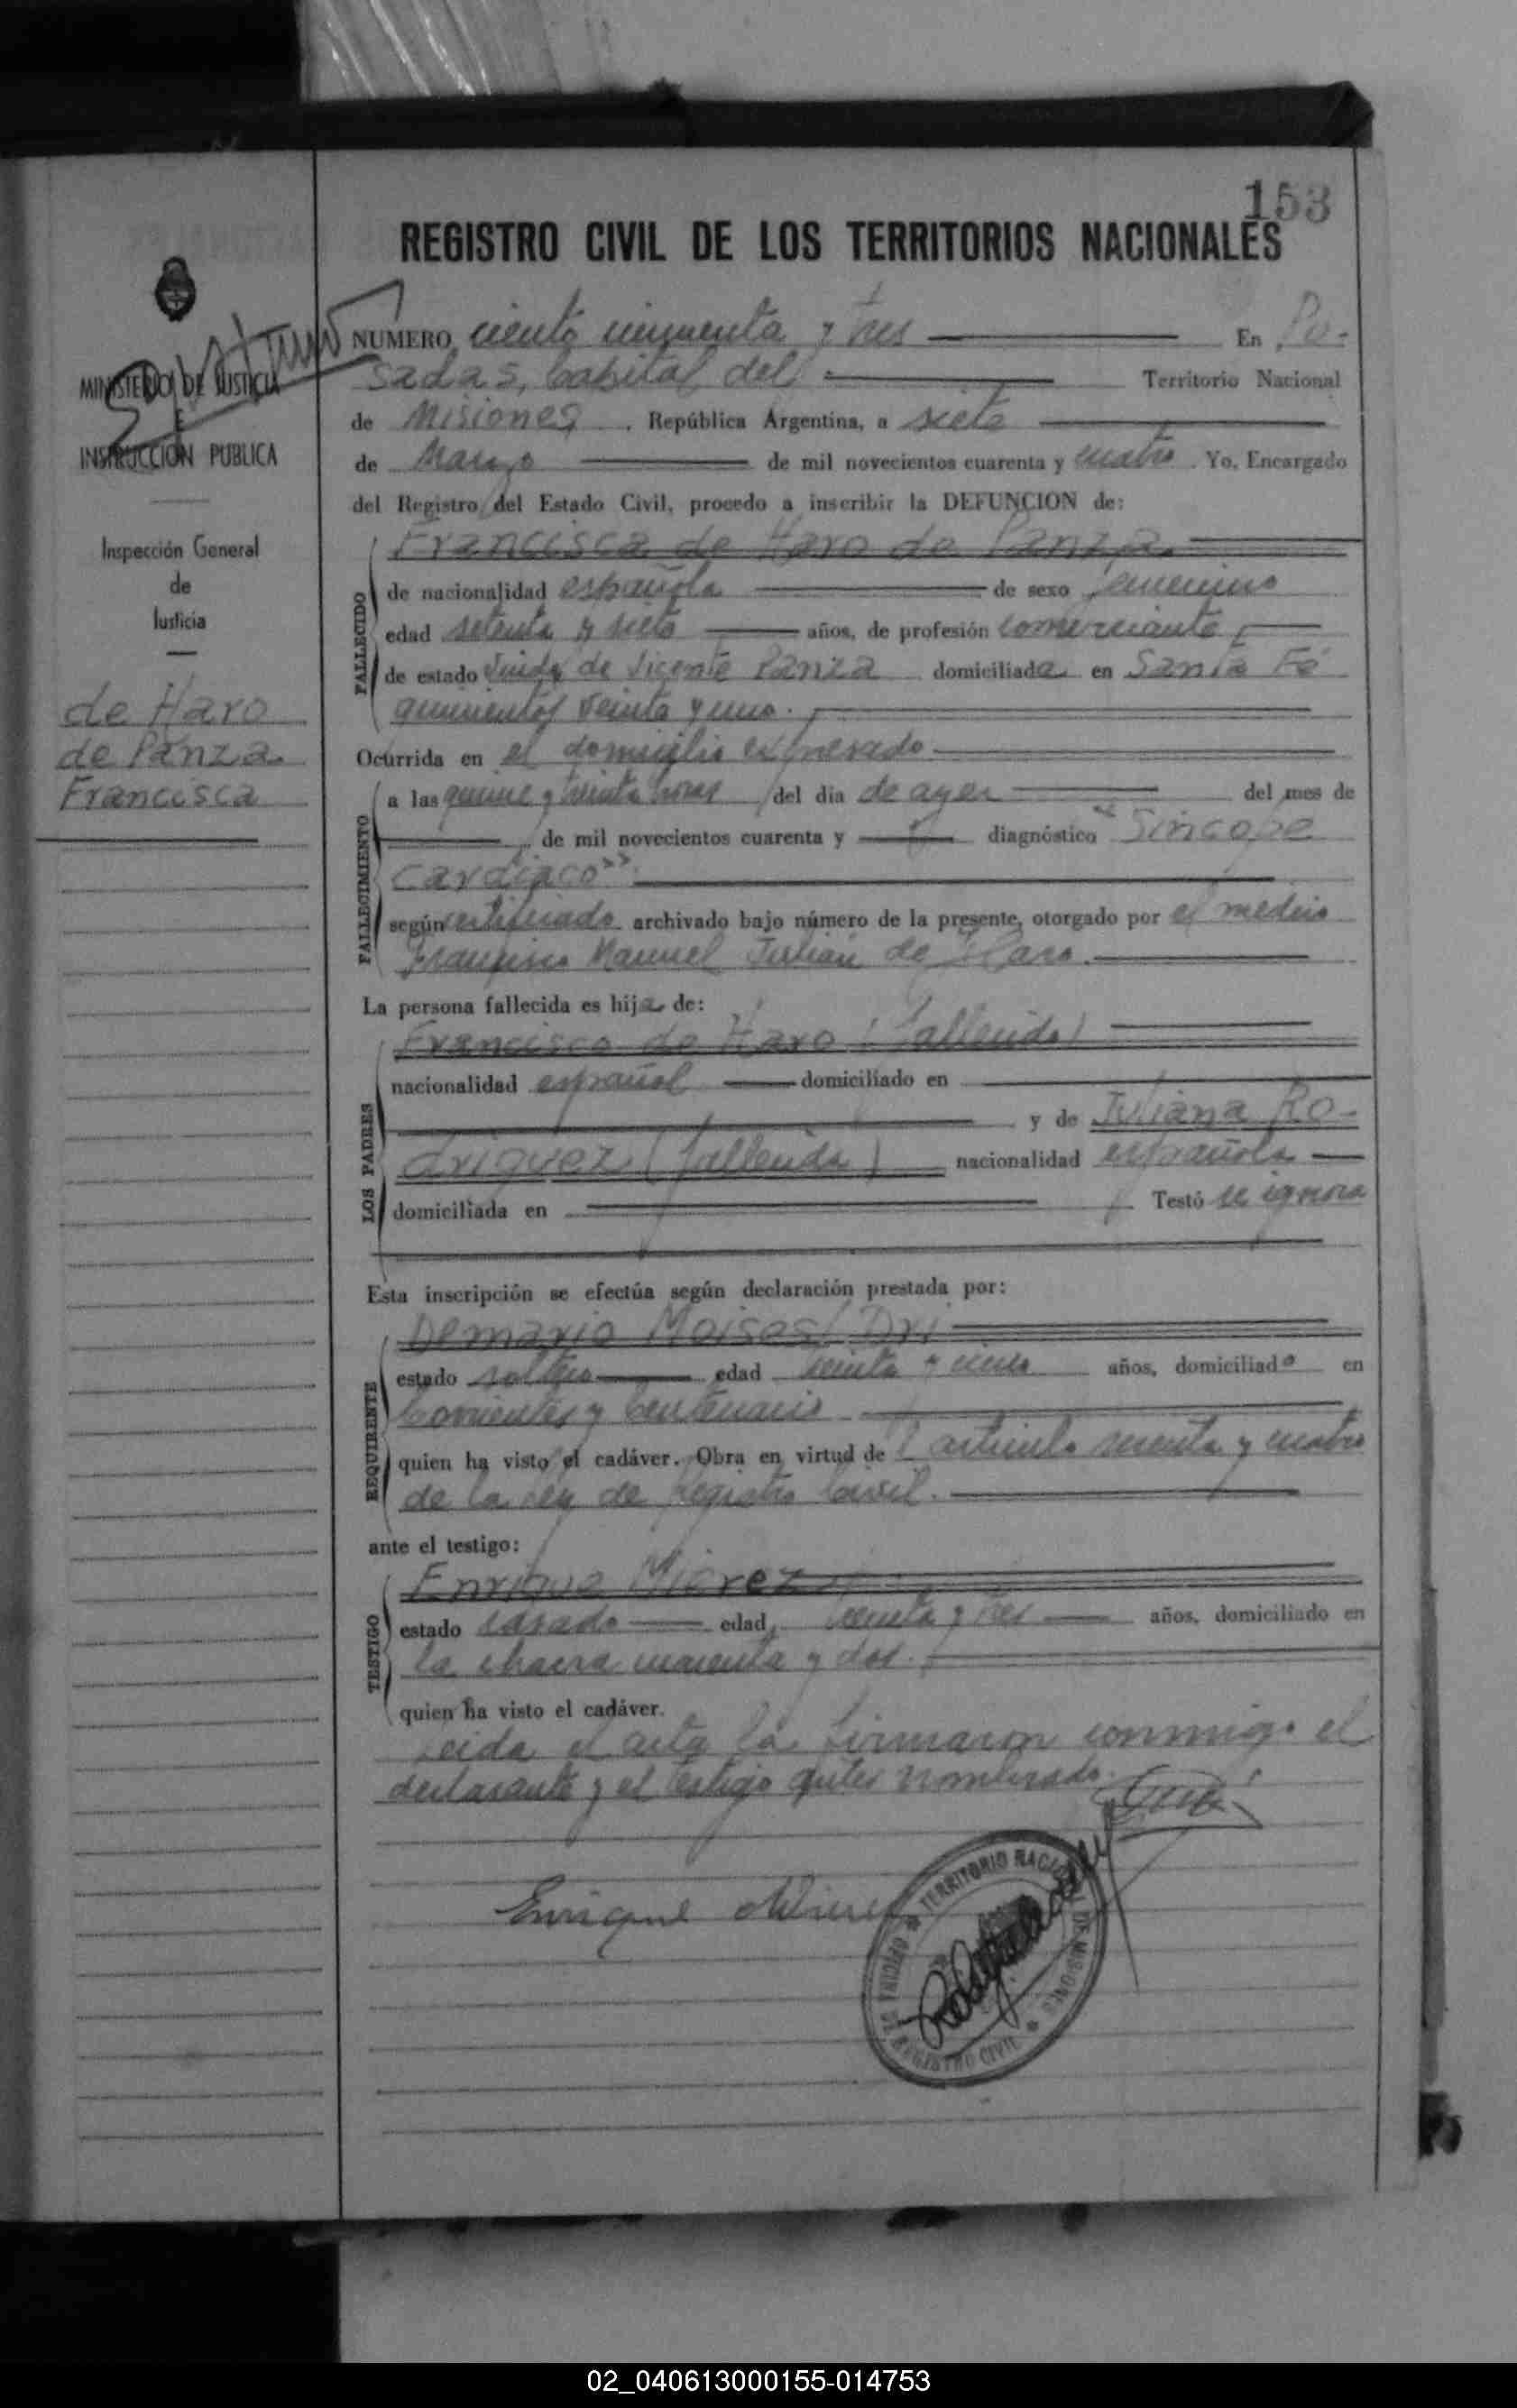 153
REGISTRO CIVIL DE LOS TERRITORIOS NACIONALES
MINISTERIO DE JUSTICIA
E
INSTRUCCION PUBLICA
Inspección General
de
Justicia
de Haro
de Panza
Francisca
NUMERO ciento cincuenta y tres En Po-
sadas, Capital del Territorio Nacional
de Misiones, República Argentina, a siete
de Marzo de mil novecientos cuarenta y cuatro. Yo, Encargado
del Registro del Estado Civil, procedo a inscribir la DEFUNCION de:
FALLECIDO
Francisca de Haro de Panza
de nacionalidad española de sexo femenino
edad setenta y siete años, de profesión comerciante,
de estado viuda de Vicente Panza domiciliada en Santa Fé
quinientos veinte y uno.
Ocurrida en el domicilio expresado
FALLECIMIENTO
a las quince y treinta horas del día de ayer del mes de
de mil novecientos cuarenta y diagnóstico "Síncope
cardíaco"
según certificado archivado bajo número de la presente, otorgado por el médico
Francisco Manuel Julián de Haro.
La persona fallecida es hija de:
LOS PADRES
Francisco de Haro (fallecido)
nacionalidad español domiciliado en
y de Juliana Ro-
driguez (fallecida) nacionalidad española
domiciliada en Testó se ignora
Esta inscripción se efectúa según declaración prestada por:
REQUIRENTE
Demario Moises Dri
estado soltero edad años, domiciliado en
Corrientes y Centenario
quien ha visto el cadáver. Obra en virtud de articulo y cuatro
de la ley de Registro Civil.
ante el testigo:
TESTIGO
Enrique Mierez
estado casado edad y tres años, domiciliado en
la chacra cuarenta y dos.
quien ha visto el cadáver.
Leida el acta la firmaron conmigo el
declarante y el testigo antes nombrado.
Enrique
TERRITORIO NACIONAL DE MISIONES
OFICINA DE REGISTRO CIVIL
02_040613000155-014753